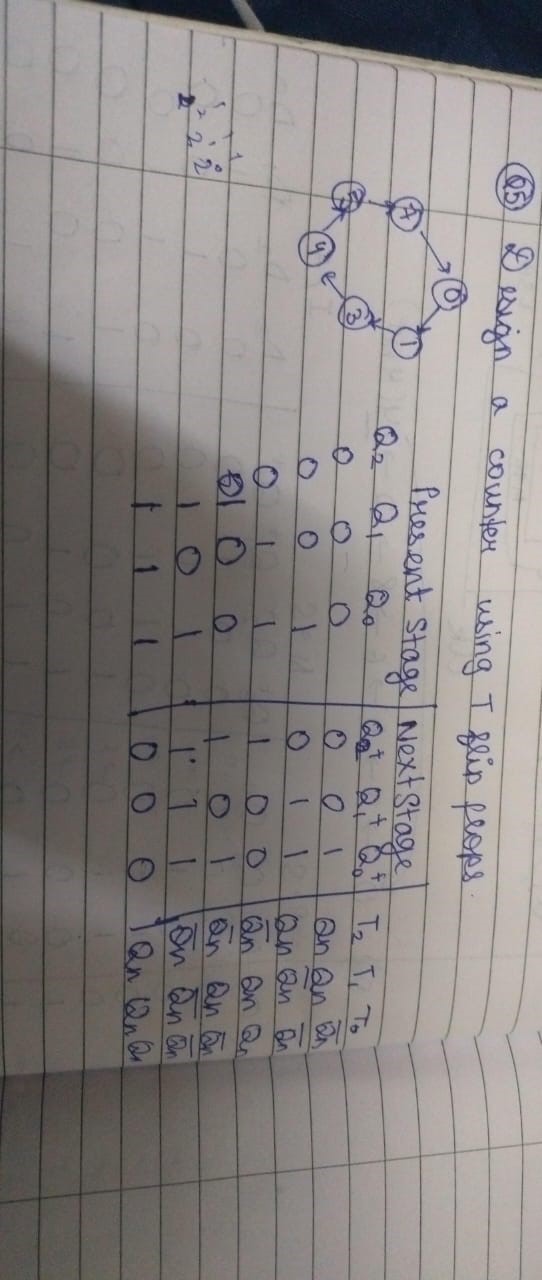 Q5 Design a counter using T flip flops.
0
7 1
5 3
4
Present Stage Next Stage
Q₂ Q₁ Q₀ Q₂⁺ Q₁⁺ Q₀⁺ T₂ T₁ T₀
0 0 0 0 0 1 Qn Qn Q̅n
0 0 1 0 1 1 Qn Q̅n Q̅n
0 1 1 1 0 0 Q̅n Qn Qn
1 0 0 1 0 1 Q̅n Qn Q̅n
1 0 1 1 1 1 Q̅n Q̅n Q̅n
1 1 1 0 0 0 Qn Qn Qn
1 1 1
2² 2¹ 2⁰